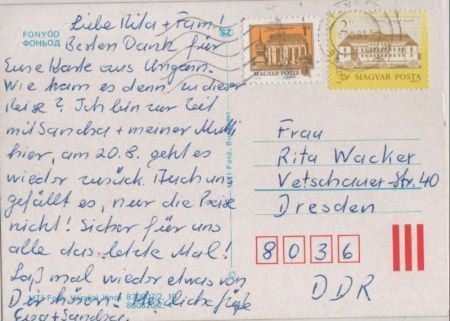 FONYÓD
ФОНЬОД
Liebe Rita + Fam!
Besten Dank für
Eure Karte aus Ungarn.
Wie kam es denn zu dieser
Reise? Ich bin zur Zeit
mit Sandra + meiner Mutti
hier, am 20.8. geht es
wieder zurück. Auch uns
gefällt es, nur die Preise
nicht! Sicher für uns
alle das letzte Mal!
Laß mal wieder etwas von
Dir hören. Herzliche Grüße
+ Sandra
MTI Fotó, Budapest
MAGYAR POSTA
2
MAGYAR POSTA
Frau
Rita Wacker
Vetschauer-Str. 40
Dresden
8036
DDR